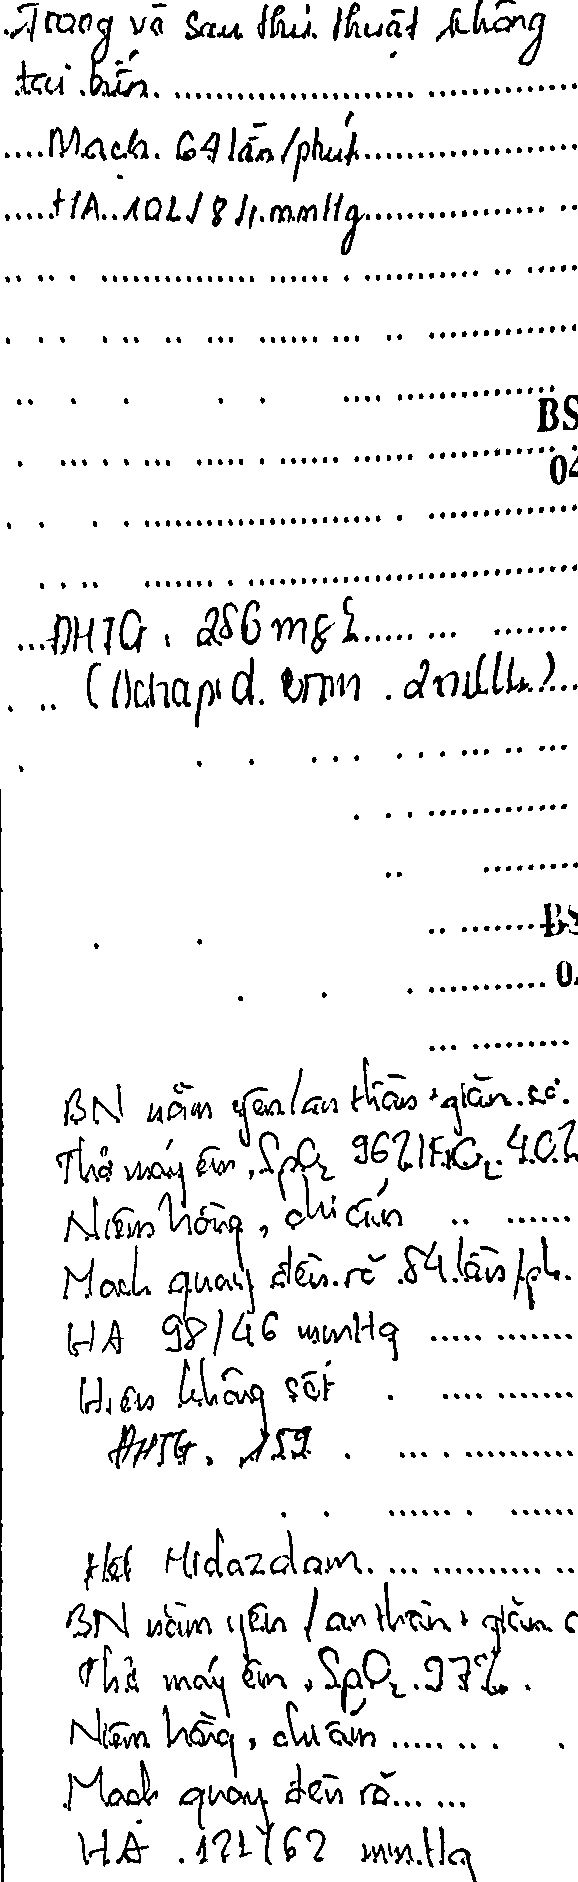 Trong và sau thủ thuật không
tai biến
Mạch 64 lần/phút
HA 102/84 mmHg
BS
04
ĐHTG: 286 mg%
(Actrapid
BS
0
BN nằm yên/an thần, giãn cơ
Thở máy êm, SpO2 96%/FiO2 40%
Niêm hồng, chi ấm
Mạch quay đều rõ 84 lần/ph
HA 98/46 mmHg
Hiện không sốt
ĐHTG: 159
Hết Midazolam
BN nằm yên/an thần, giãn c
Thở máy êm, SpO2 97%
Niêm hồng, chi ấm
Mạch quay đều rõ
HA 121/62 mmHg